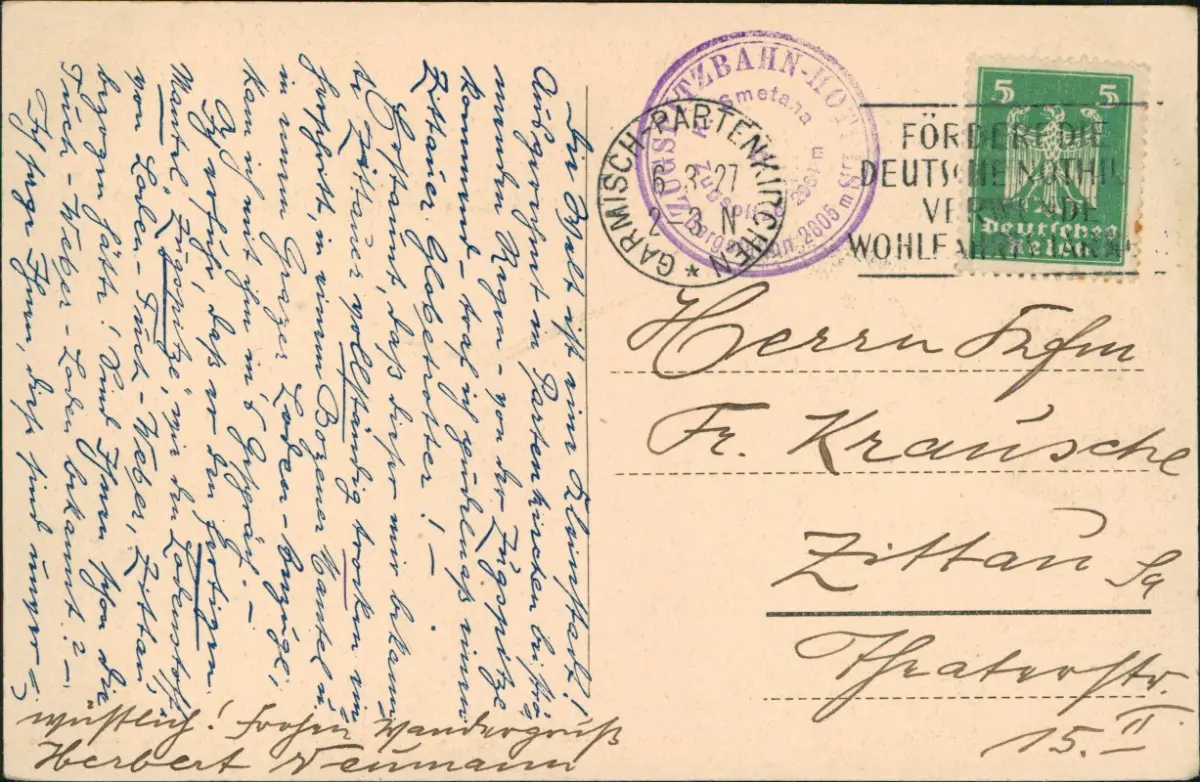 Die Welt ist eine Kleinstadt!
Ausgerechnet in Partenkirchen bei strö-
mendem Regen - von der Zugspitze
kommend - traf ich einen
Zittauer Globetrotter! -
Erstaunt, daß dieser mir bekann-
te Zittauer vollständig trocken im
in einem Bozener Mantel u.
in einem Grazer Loden-Anzüge,
kam ich mit ihm in's Gespräch. -
Ich erfuhr, daß er den fertigen
Mantel „Zugspitze", wie den Lodenstoff
von Loden-Tuch-Weber, Zittau,
bezogen hätte! Sind Ihnen schon die
Tuch-Weber-Loden bekannt? -
Ich sage Ihnen, diese sind unver-
wüstlich! Frohen Wandergruß
Herbert Neumann
ZUGSPITZBAHN-HOTEL
Smetana
Zugspitze 2964 m
2805 m
GARMISCH-PARTENKIRCHEN
6.3.27
2-3 N
FÖRDERE DIE
DEUTSCHE NOTHIL
VERWENDE
WOHLFAHRTSMARK
5 5
Deutsches
Reich
Herrn
Fr. Krausche
Zittau Sa
Theaterstr.
15. II